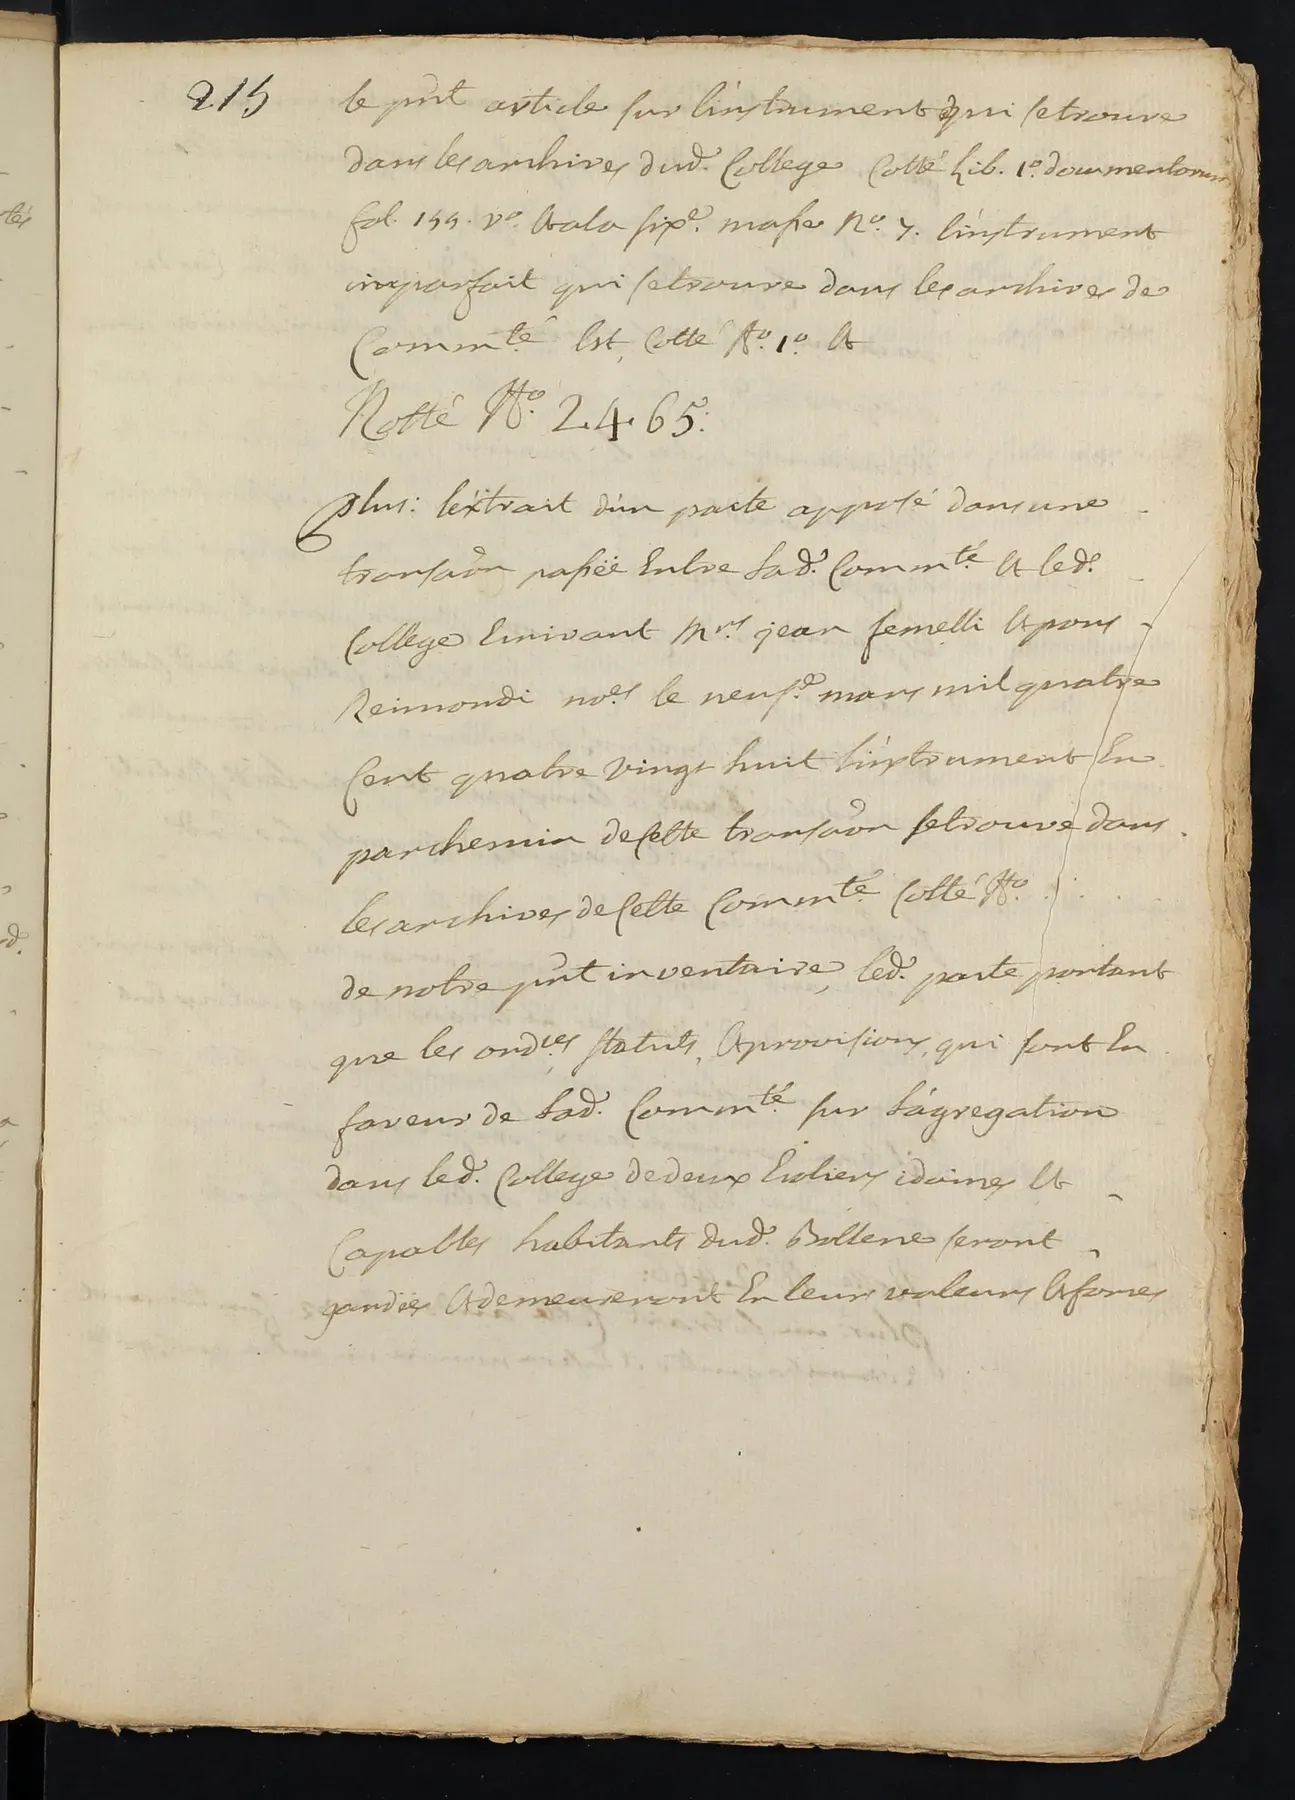 215
le pñt article sur l'instrument qui se trouve
dans les archives dud. College Cotté Lib. 1o. documentorum
fol. 144. vo. et a la sixe. masse No. 7. l'instrument
imparfait qui se trouve dans les archives de
Commté. Est, Cotté No. 1o. et
Notté No. 2465:
Plus: l'éxtrait d'un pacte apposé dans une
transaõn passée Entre lad. Commté. et led.
College Ecrivant Mrs. jean femelli et pons
Reimondi noes. le neufe. mars mil quatre
Cent quatre vingt huit l'instrument En
parchemin de Cette transaõn se trouve dans
les archives de Cette Commté. Cotté No. . . .
de notre pñt inventaire, led. pacte portant
que les ordces, statuts, et provisions, qui sont En
faveur de lad. Commté. sur l'ágregation
dans led. College de deux Ecoliers idoines et
Capables habitants dud. Bollene seront
gardées et demeureront En leurs valeurs et forces